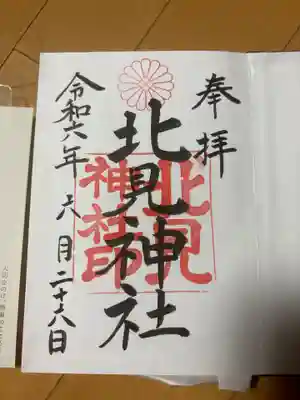 奉拝
北見神社
北見
神社印
令和六年 六月二十六日